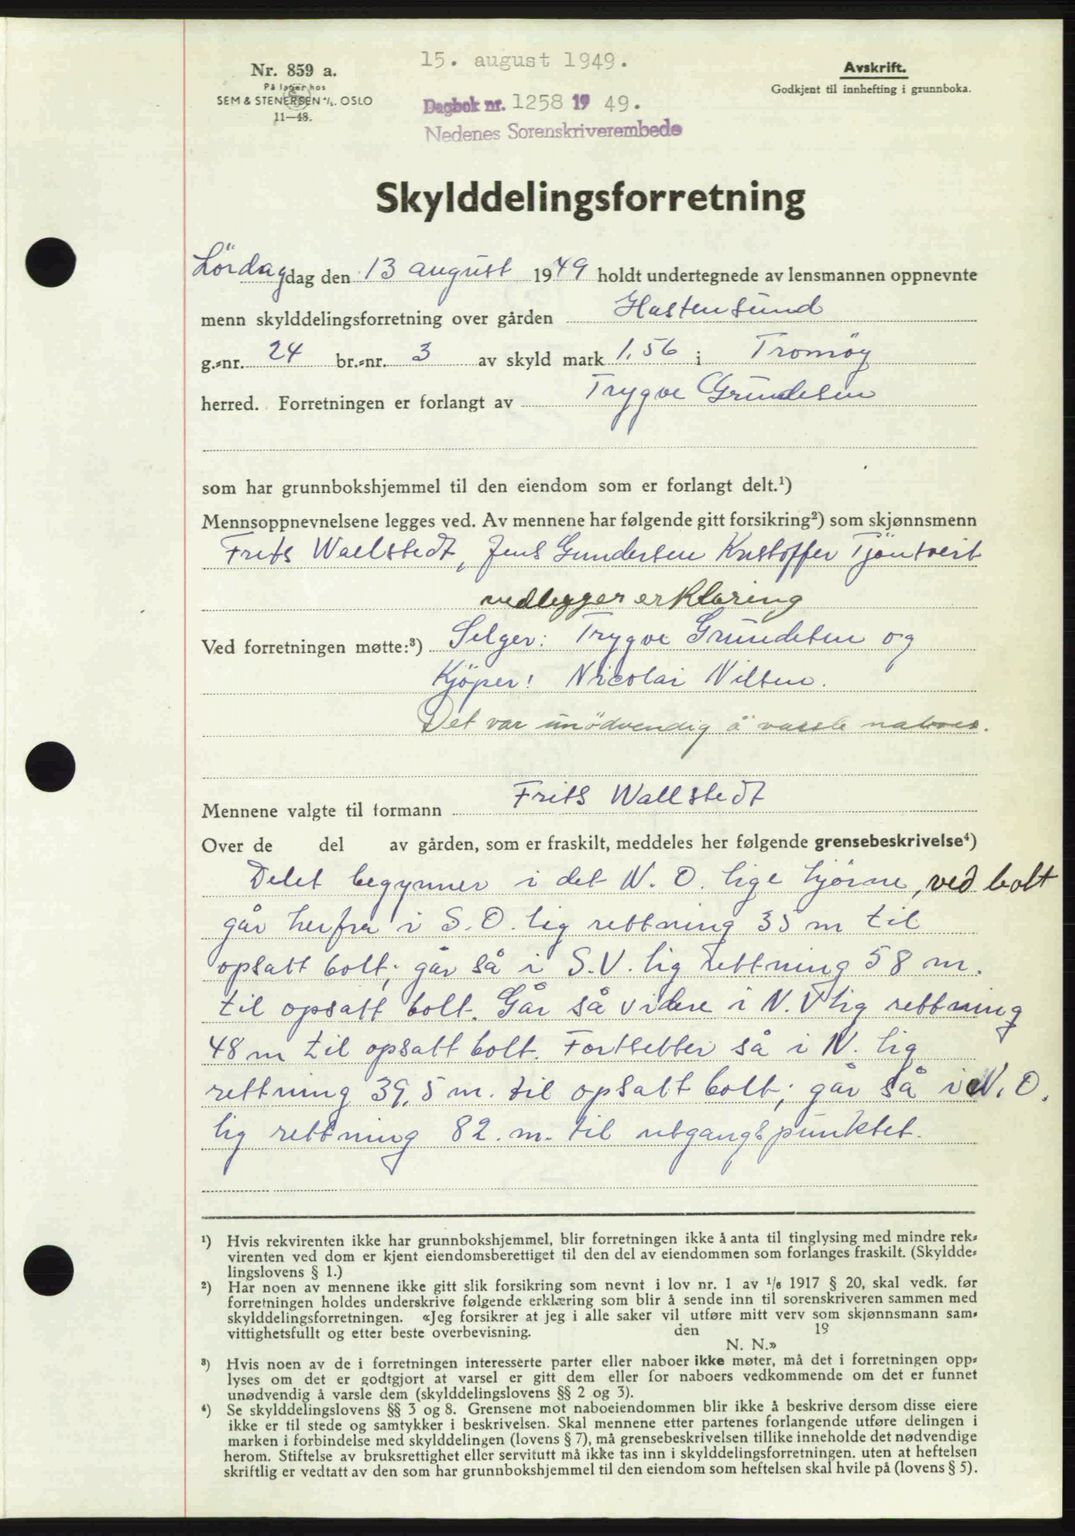 15. august 1949.
Nr. 859 a.
På lager hos
SEM & STENERSEN A/S. OSLO
11—48.
Dagbok nr. 1258 19 49.
Nedenes Sorenskriverembede
Avskrift.
Godkjent til innhefting i grunnboka.
Skylddelingsforretning
Lördag dag den 13 august 1949 holdt undertegnede av lensmannen oppnevnte
menn skylddelingsforretning over gården Hastensund
g.-nr. 24 br.-nr. 3 av skyld mark 1,56 i Tromöy
herred. Forretningen er forlangt av Trygve Grundesen
som har grunnbokshjemmel til den eiendom som er forlangt delt.¹)
Mennsoppnevnelsene legges ved. Av mennene har følgende gitt forsikring²) som skjønnsmenn
Frits Wallstedt, Jens Gundersen Kristoffer Tjöntveit
vedlegger erklæring
Ved forretningen møtte:³) Selger: Trygve Grundesen og
Kjöper: Nicolai Nilsen.
Det var unödvendig å varsle naboer.
Mennene valgte til formann Frits Wallstedt
Over de del av gården, som er fraskilt, meddeles her følgende grensebeskrivelse⁴)
Delet begynner i det N.O. lige hjörne, ved bolt
går herfra i S.O. lig rettning 35 m til
opsatt bolt; går så i S.V. lig rettning 58 m.
til opsatt bolt. Går så videre i N.V lig rettning
48 m til opsatt bolt. Fortsetter så i N. lig
rettning 39,5 m. til opsatt bolt; går så i N.O.
lig rettning 82. m. til utgangspunktet.
¹) Hvis rekvirenten ikke har grunnbokshjemmel, blir forretningen ikke å anta til tinglysing med mindre rek-
virenten ved dom er kjent eiendomsberettiget til den del av eiendommen som forlanges fraskilt. (Skyldde-
lingslovens § 1.)
²) Har noen av mennene ikke gitt slik forsikring som nevnt i lov nr. 1 av 1/6 1917 § 20, skal vedk. før
forretningen holdes underskrive følgende erklæring som blir å sende inn til sorenskriveren sammen med
skylddelingsforretningen. «Jeg forsikrer at jeg i alle saker vil utføre mitt verv som skjønnsmann sam-
vittighetsfullt og etter beste overbevisning. den 19
N. N.»
³) Hvis noen av de i forretningen interesserte parter eller naboer ikke møter, må det i forretningen opp-
lyses om det er godtgjort at varsel er gitt dem eller for naboers vedkommende om det er funnet
unødvendig å varsle dem (skylddelingslovens §§ 2 og 3).
⁴) Se skylddelingslovens §§ 3 og 8. Grensene mot naboeiendommen blir ikke å beskrive dersom disse eiere
ikke er til stede og samtykker i beskrivelsen. Skal mennene etter partenes forlangende utføre delingen i
marken i forbindelse med skylddelingen (lovens § 7), må grensebeskrivelsen tillike inneholde det nødvendige
herom. Stiftelse av bruksrettighet eller servitutt må ikke tas inn i skylddelingsforretningen, uten at heftelsen
skriftlig er vedtatt av den som har grunnbokshjemmel til den eiendom som heftelsen skal hvile på (lovens § 5).